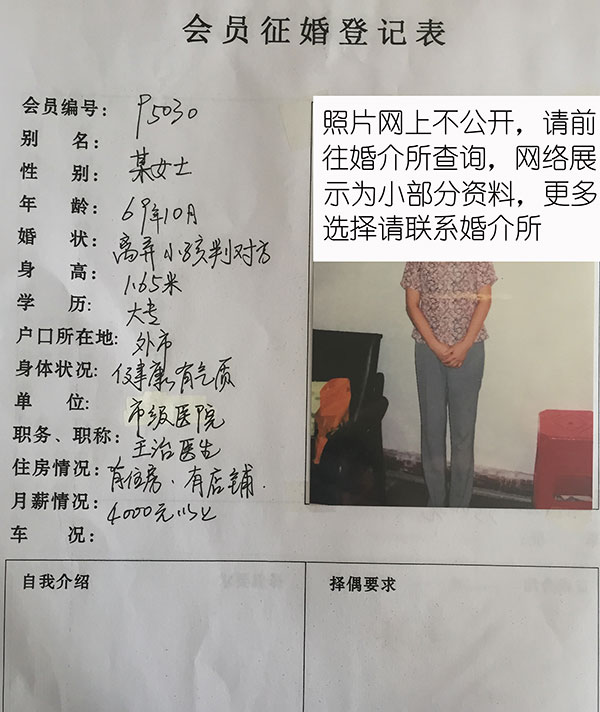 会员征婚登记表
会员编号: P5030
别 名: 某女士
性 别:
年 龄: 69年10月
婚 状: 离弃小孩判对方
身 高: 1.65米
学 历: 大专
户口所在地: 外市
身体状况: 健康,有气质
单 位: 市级医院
职务、职称: 主治医生
住房情况: 有住房、有店铺.
月薪情况: 4000元以上
车 况:
照片网上不公开,请前
往婚介所查询,网络展
示为小部分资料,更多
选择请联系婚介所
自我介绍
择偶要求